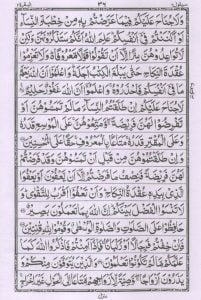 سيقول ٢ ٣٦ البقرة ٢
وَلَا جُنَاحَ عَلَيْكُمْ فِيمَا عَرَّضْتُمْ بِهٖ مِنْ خِطْبَةِ النِّسَآءِ
اَوْ اَكْنَنْتُمْ فِيْٓ اَنْفُسِكُمْ عَلِمَ اللّٰهُ اَنَّكُمْ سَتَذْكُرُوْنَهُنَّ وَلٰكِنْ
لَّا تُوَاعِدُوْهُنَّ سِرًّا اِلَّآ اَنْ تَقُوْلُوْا قَوْلًا مَّعْرُوْفًا وَلَا تَعْزِمُوْا
عُقْدَةَ النِّكَاحِ حَتّٰى يَبْلُغَ الْكِتٰبُ اَجَلَهٗ وَاعْلَمُوْٓا اَنَّ اللّٰهَ
يَعْلَمُ مَا فِيْٓ اَنْفُسِكُمْ فَاحْذَرُوْهُ وَاعْلَمُوْٓا اَنَّ اللّٰهَ غَفُوْرٌ حَلِيْمٌ
لَا جُنَاحَ عَلَيْكُمْ اِنْ طَلَّقْتُمُ النِّسَآءَ مَا لَمْ تَمَسُّوْهُنَّ اَوْ
تَفْرِضُوْا لَهُنَّ فَرِيْضَةً وَّمَتِّعُوْهُنَّ عَلَى الْمُوْسِعِ قَدَرُهٗ
وَعَلَى الْمُقْتِرِ قَدَرُهٗ مَتَاعًا بِالْمَعْرُوْفِ حَقًّا عَلَى الْمُحْسِنِيْنَ
وَاِنْ طَلَّقْتُمُوْهُنَّ مِنْ قَبْلِ اَنْ تَمَسُّوْهُنَّ وَقَدْ فَرَضْتُمْ
لَهُنَّ فَرِيْضَةً فَنِصْفُ مَا فَرَضْتُمْ اِلَّآ اَنْ يَّعْفُوْنَ اَوْ يَعْفُوَا
الَّذِيْ بِيَدِهٖ عُقْدَةُ النِّكَاحِ وَاَنْ تَعْفُوْٓا اَقْرَبُ لِلتَّقْوٰى وَ
لَا تَنْسَوُا الْفَضْلَ بَيْنَكُمْ اِنَّ اللّٰهَ بِمَا تَعْمَلُوْنَ بَصِيْرٌ
حٰفِظُوْا عَلَى الصَّلَوٰتِ وَالصَّلٰوةِ الْوُسْطٰى وَقُوْمُوْا لِلّٰهِ قٰنِتِيْنَ
فَاِنْ خِفْتُمْ فَرِجَالًا اَوْ رُكْبَانًا فَاِذَآ اَمِنْتُمْ فَاذْكُرُوا اللّٰهَ كَمَا
عَلَّمَكُمْ مَّا لَمْ تَكُوْنُوْا تَعْلَمُوْنَ وَالَّذِيْنَ يُتَوَفَّوْنَ مِنْكُمْ وَ
يَذَرُوْنَ اَزْوَاجًا وَّصِيَّةً لِّاَزْوَاجِهِمْ مَّتَاعًا اِلَى الْحَوْلِ غَيْرَ اِخْرَاجٍ
منزل